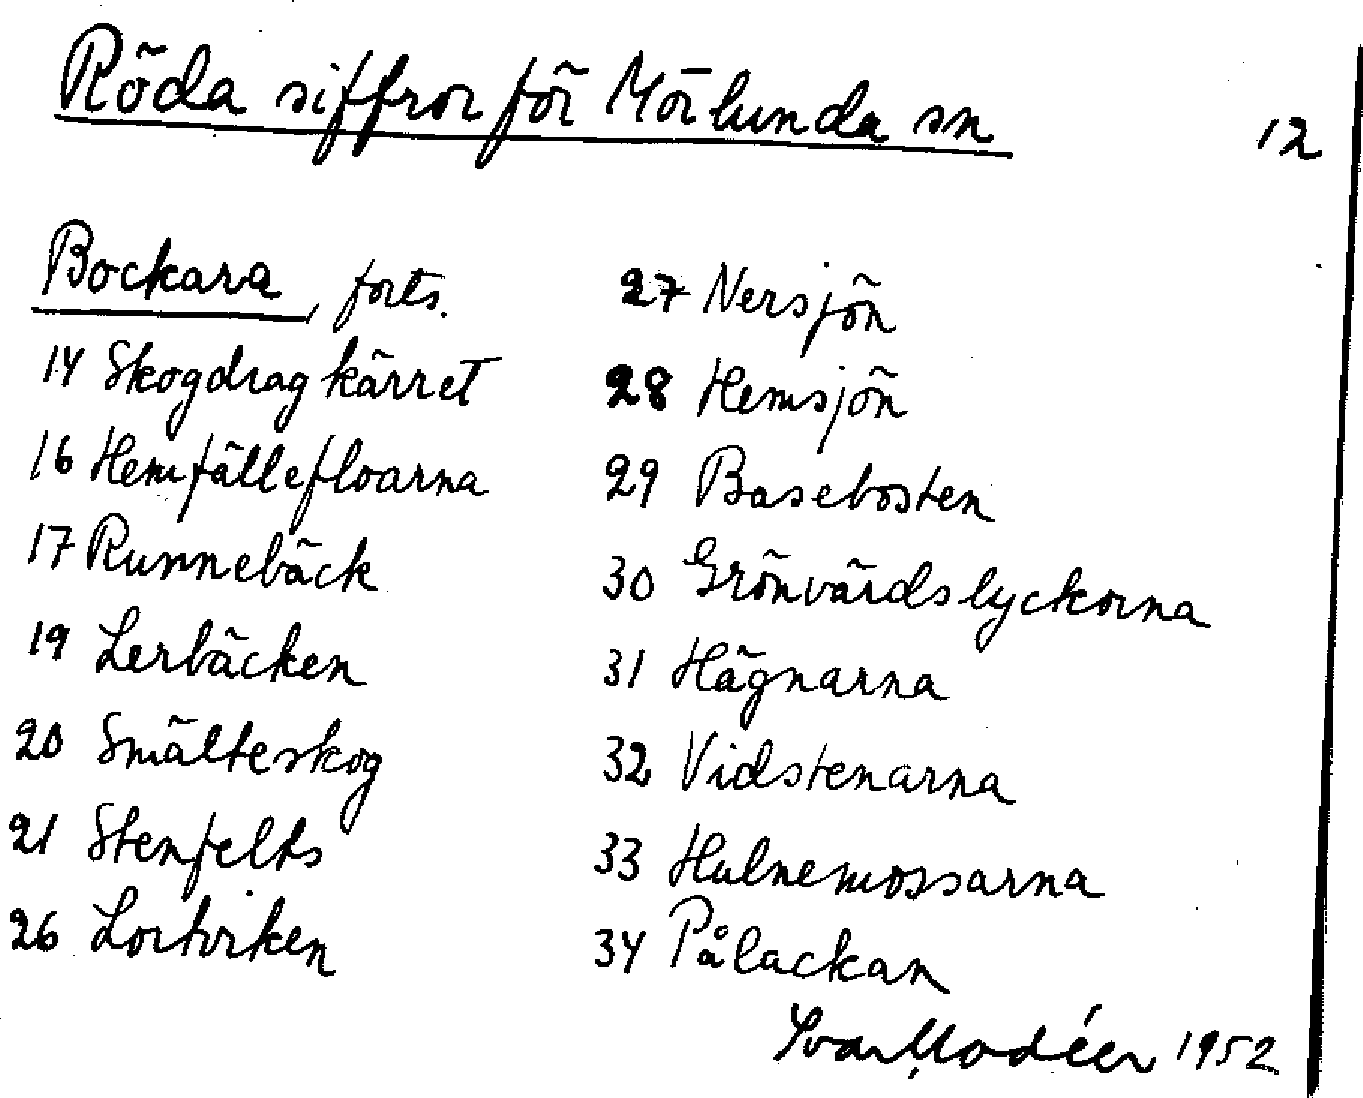 Röda siffror för Mörlunda sn
12
Bockara, forts.
14 Skogdragkärret
16 Hemfällefloarna
17 Runnebäck
19 Lerbäcken
20 Smälteskog
21 Stenfelts
26 Lortviken
27 Nersjön
28 Hemsjön
29 Basebosten
30 Grönvärdslyckorna
31 Hägnarna
32 Vidstenarna
33 Hulnemossarna
34 Pålackan
Ivar Modéer 1952